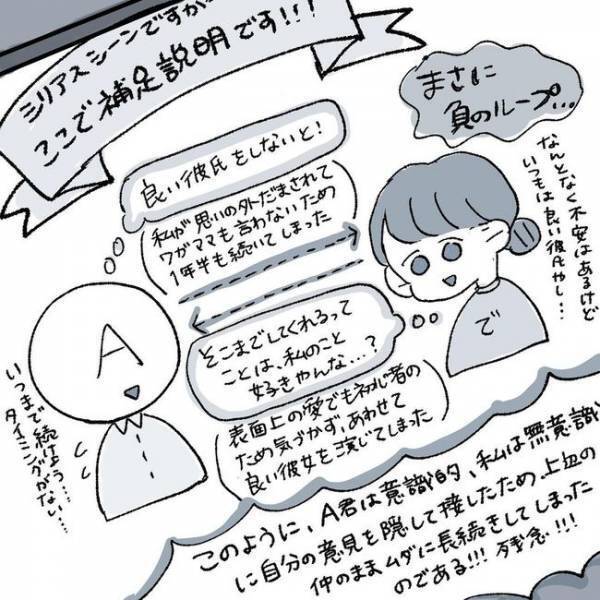 シリアスシーンですが…
ここで補足説明です!!!
まさに
負のループ…
良い彼氏をしないと!
私が思いの外だまされて
ワガママも言わないため
1年半も続いてしまった
なんとなく不安はあるけど
いつもは良い彼氏やし…
A
で
そこまでしてくれるって
ことは、私のこと
好きやんな…?
表面上の愛でも初心者の
ため気づかず、あわせて
良い彼女を演じてしまった
いつまで続けよう…
タイミングがない…
このように、A君は意識的、私は無意識
に自分の意見を隠して接したため、上辺の
仲のままムダに長続きしてしまった
のである!!! 残念!!!